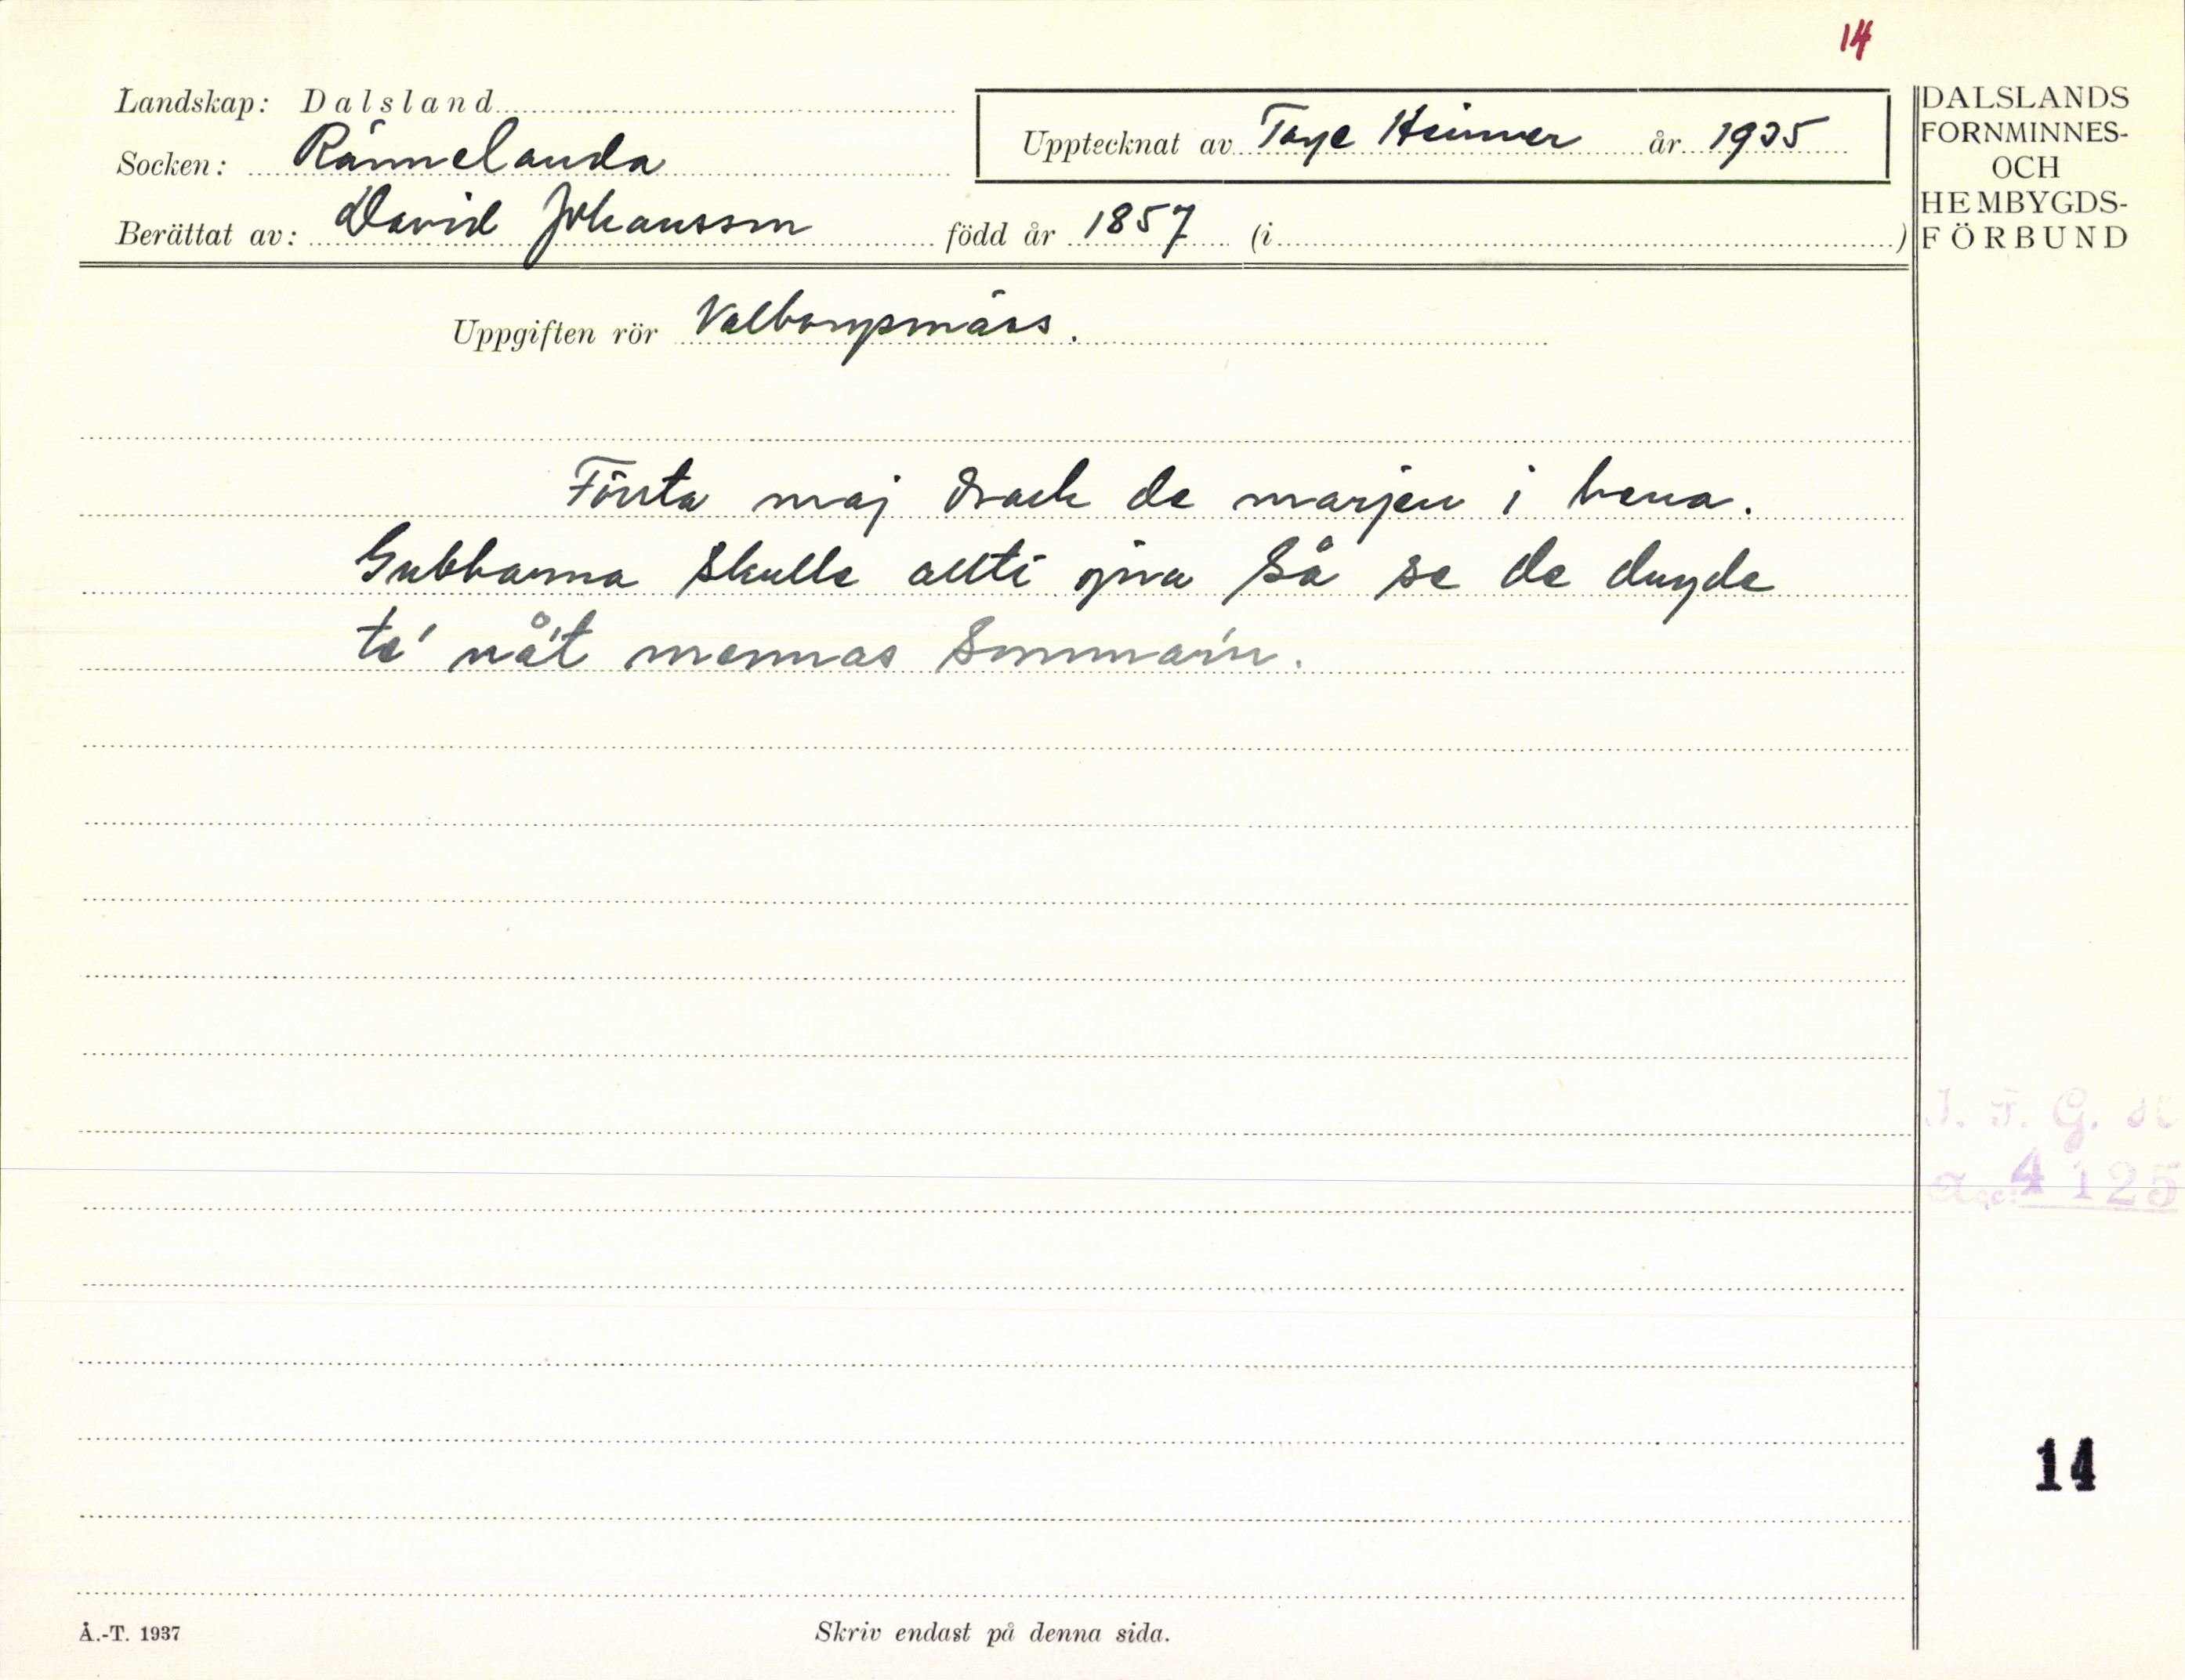 14
Landskap: Dalsland
Socken: Rännelanda
Upptecknat av Tage Heimer år 1935
Berättat av: David Johansson född år 1857 (i )
DALSLANDS
FORNMINNES-
OCH
HEMBYGDS-
FÖRBUND
Uppgiften rör Valborgsmäss.
Första maj drack de marjen i bena.
Gubbarna skulle allti göra så se de dugde
te' nå't mennas sommar'n.
I. F. G. H
Acc. 4125
14
Å.-T. 1937
Skriv endast på denna sida.